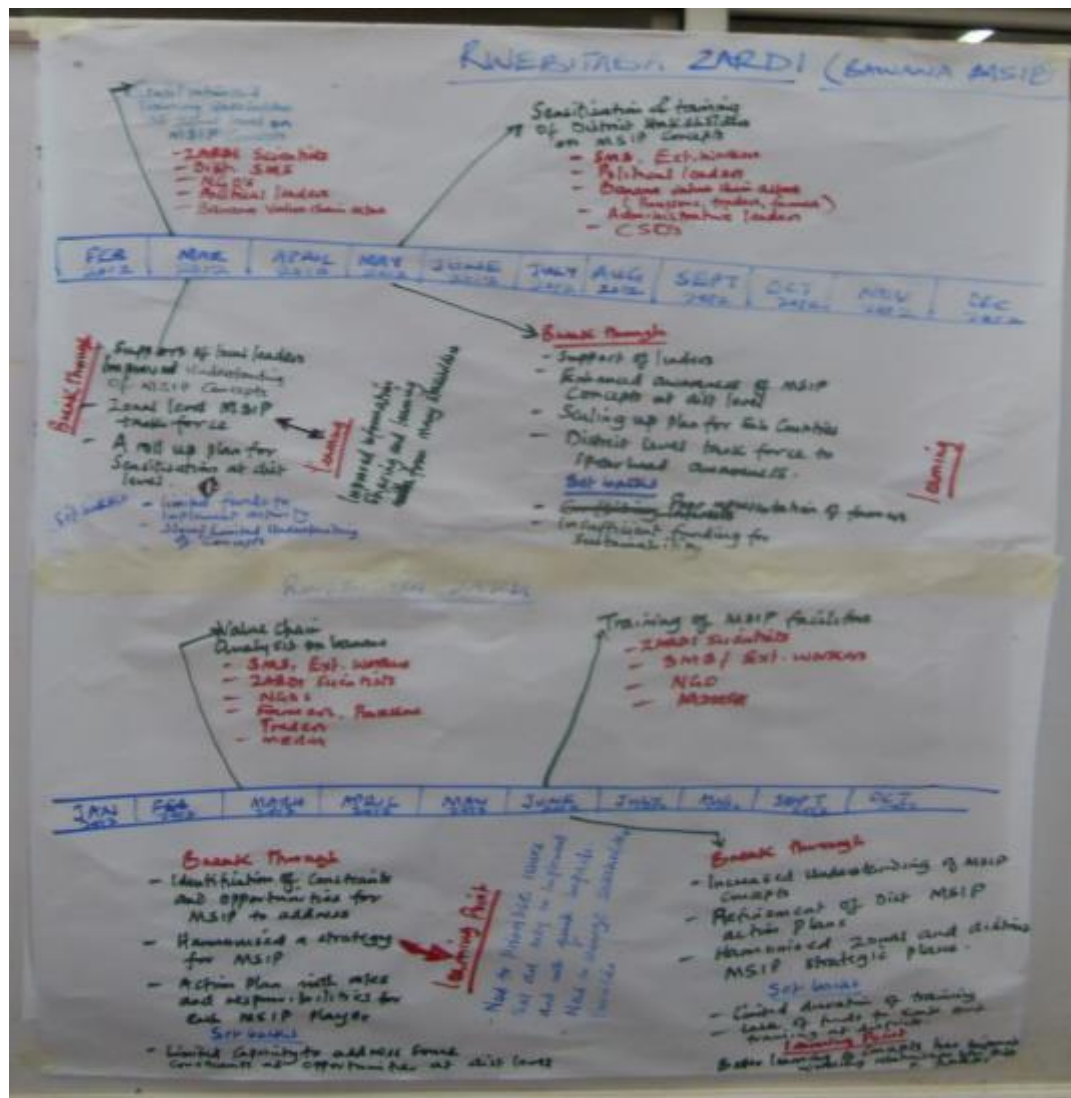 RWEBITABA ZARDI (BANANA MSIP)
Training Stakeholders
MSIP
- ZARDI Scientists
- Dist. SMS
- NGO's
- Political leaders
- Banana value chain actors
Sensitisation & training
Of District Stakeholders
on MSIP Concepts
- SMS, Ext. workers
- Political leaders
- Banana value chain actors
traders, farmers)
- Administrative leaders
- CSOs
FEB 2012
MAR 2012
APRIL 2012
MAY 2012
JUNE 2012
JULY 2012
AUG 2012
SEPT 2012
OCT 2012
NOV 2012
DEC 2012
Break through
- Support of local leaders
Improved Understanding
Of MSIP Concepts
- Zonal level MSIP
task force
- A roll up plan for
Sensitisation at dist
level.
Set backs
- limited funds to
implement activity
limited Understanding
of Concepts
Learning
Improved information
sharing and learning
from many stakeholders
Break through
- Support of leaders
- Enhanced awareness of MSIP
Concepts at dist level
- Scaling up plan for Sub Counties
- District level task force to
Spearhead awareness.
Set backs
- Poor representation of farmers
- Insufficient funding for
Sustainability
Learning
Value Chain
Analysis on banana
- SMS, Ext. workers
- ZARDI Scientists
- NGOs
- Farmers,
Traders
- Media
Training of MSIP facilitators
- ZARDI Scientists
- SMS / Ext. workers
- NGO
JAN 2012
FEB 2012
MARCH 2012
APRIL 2012
MAY 2012
JUNE 2012
JULY 2012
AUG.
SEPT
OCT.
Break through
- Identification of Constraints
and opportunities for
MSIP to address
- Harmonised a strategy
for MSIP
- Action Plan with roles
and responsibilities for
each MSIP Player
Set backs
- Limited Capacity to address some
Constraints or opportunities at dist level
Learning Point
- Need to prioritise issues
- Need to
Break through
- Increased Understanding of MSIP
Concepts
- Refinement of Dist MSIP
action plans
- Harmonised Zonal and
MSIP strategic plans.
Set backs
- Limited duration of training
- Lack of funds to
training at
Learning Point
Better learning of concepts